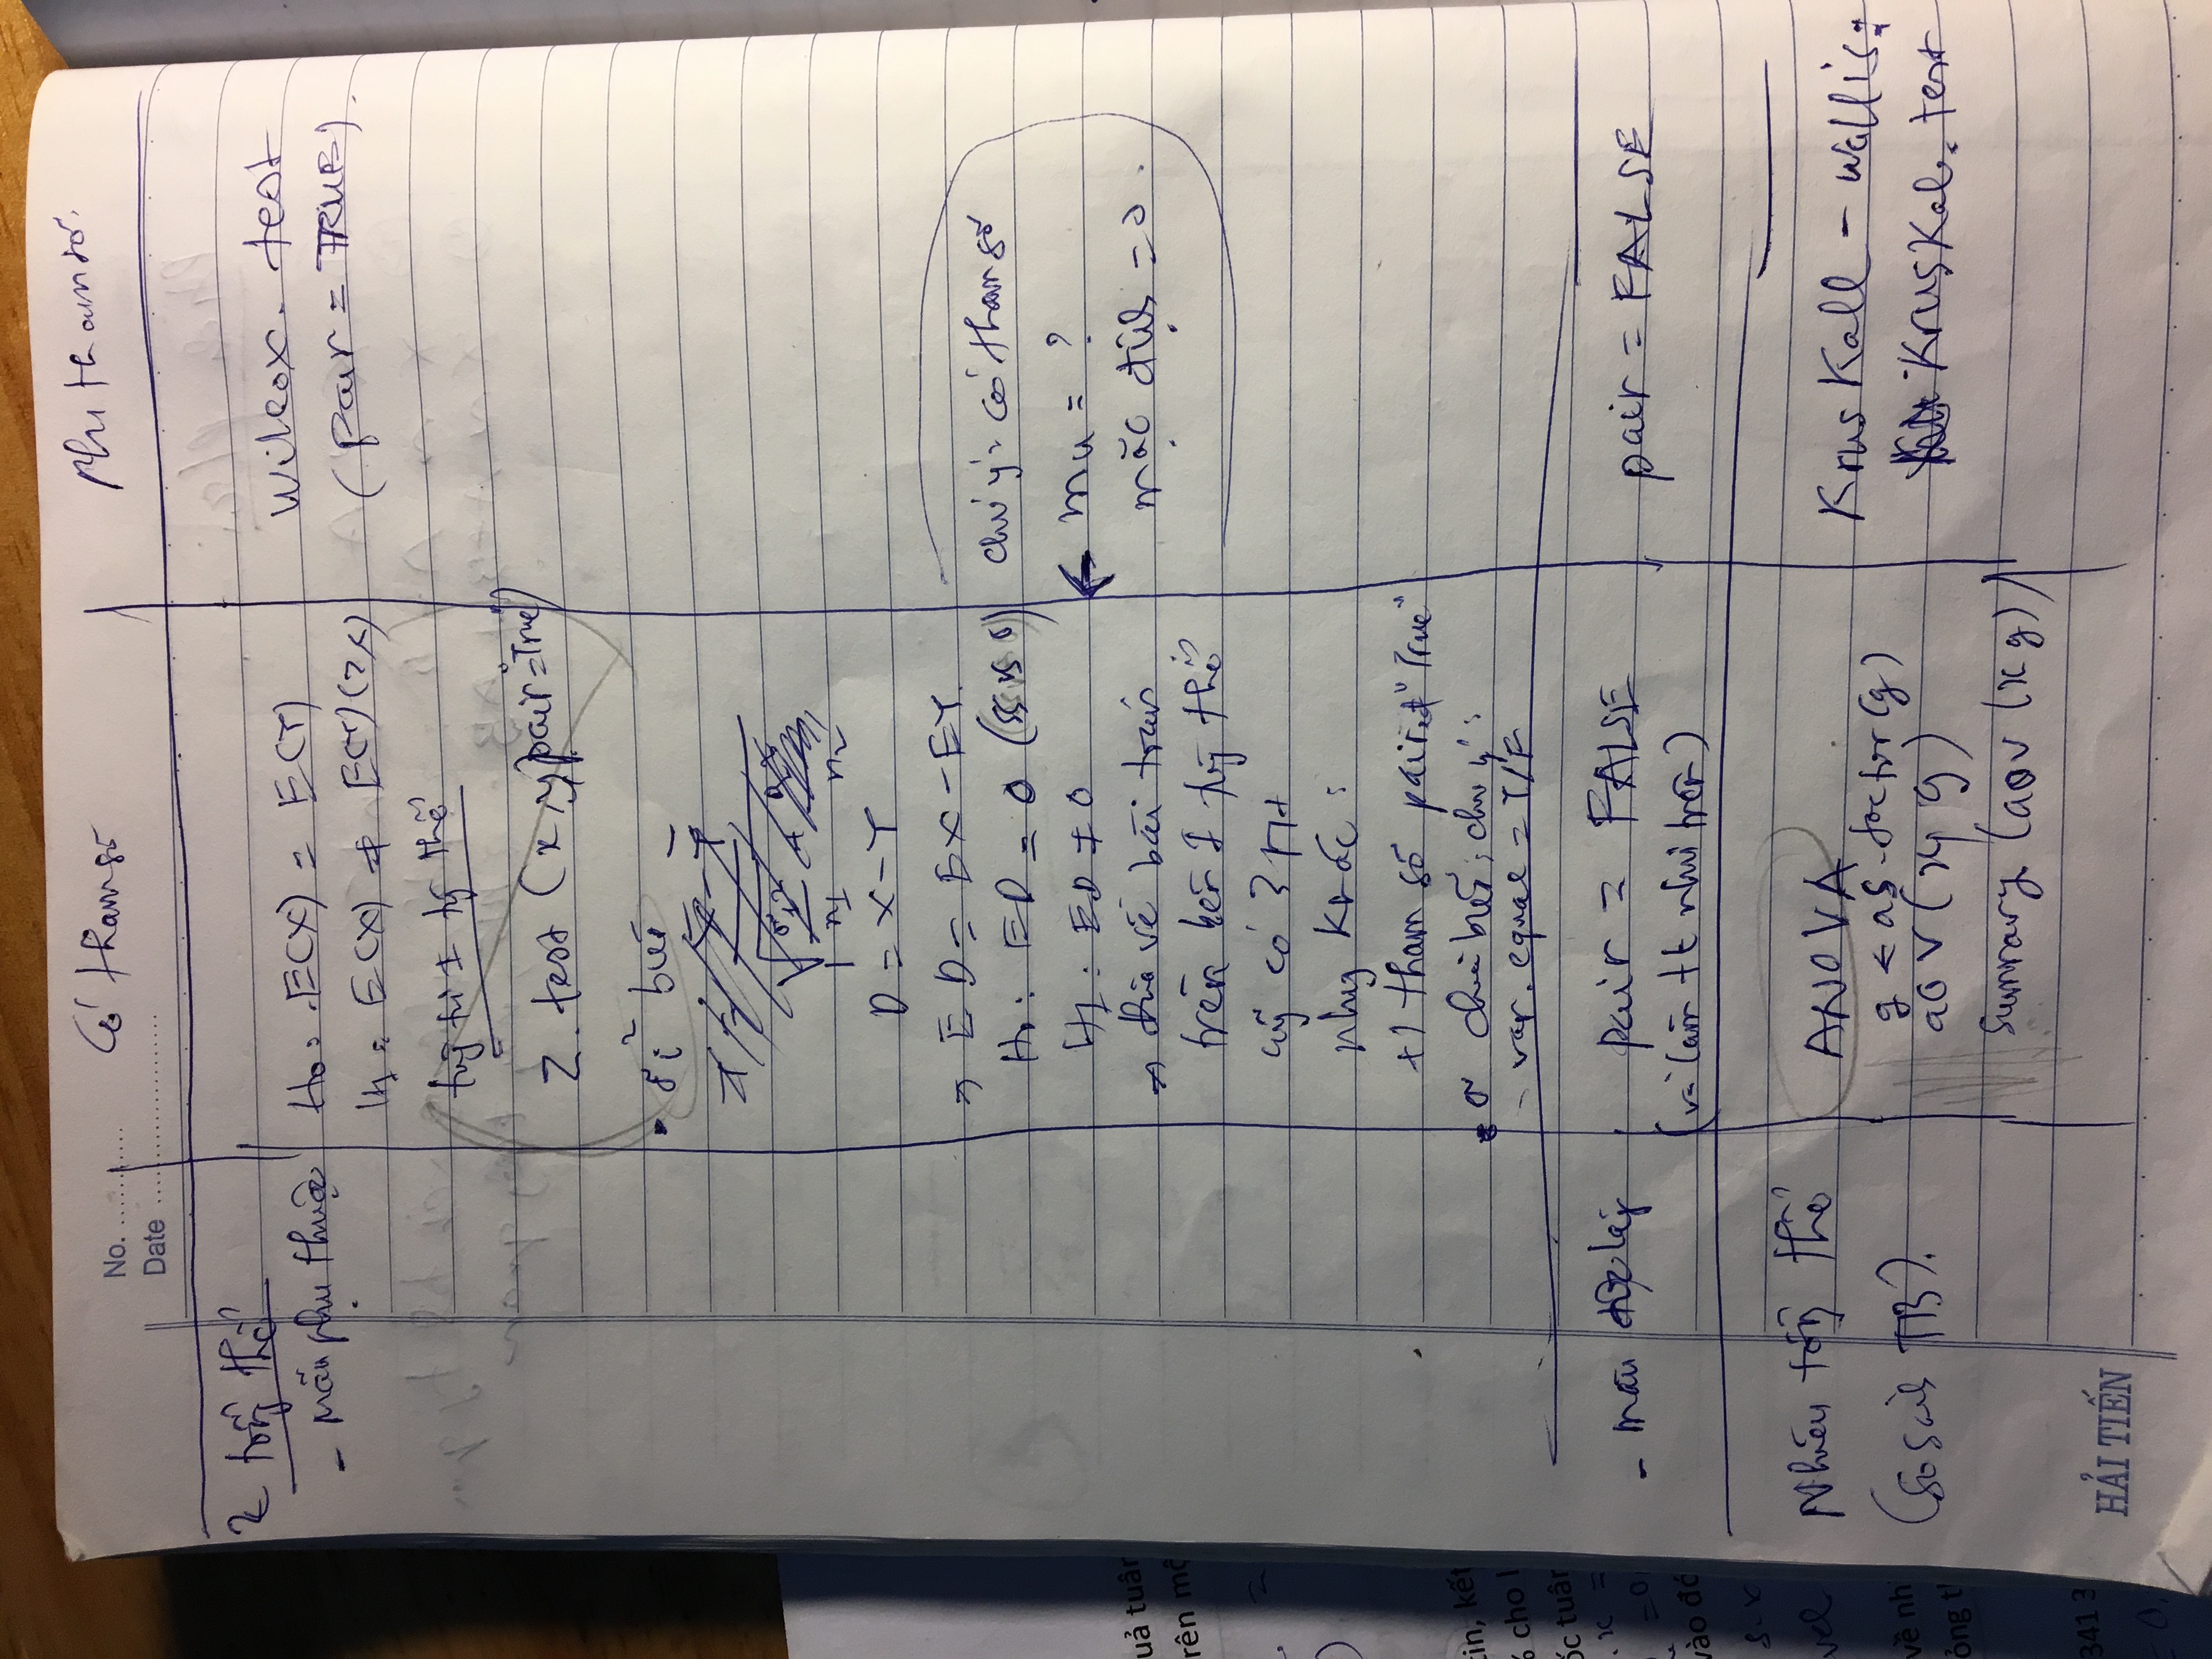 No. ............
Date ......................
Có tham số
Phi tham số.
2 tổng thể
- Mẫu phụ thuộc
H₀: E(X) = E(Y)
H₁: E(X) ≠ E(Y) (><)
tg tự 1 tg thể
Z. test (x, y, pair="True")
• σi² biết
n1 n2
D = X - Y
→ ED = EX - EY.
H₀: ED = 0 (ss vs 0)
H1: ED ≠ 0
→ đưa về bài toán
trên 1 tg thể
cũg có 3 TH
nhưg khác:
+1 tham số pair = "True"
• σ chưa biết; chú ý:
- var. equal = T/F
Wilcox. test
(pair = TRUE).
chú ý: có tham số
← mu = ?
mặc địh = 0.
- mẫu độc lập
pair = FALSE
(và làm tt như trên)
pair = FALSE
Nhiều tổg thể
(So sáh TB).
ANOVA
g ← as.factor(g)
aov(x~g)
summary (aov (x~g))
Kruskall - Wallis:
Kruskal. test
HẢI TIẾN
uả tuân
rên mộ
tin, kết
% cho l
ốc tuân
vào đó
vel
về nh
341 3
= 0.